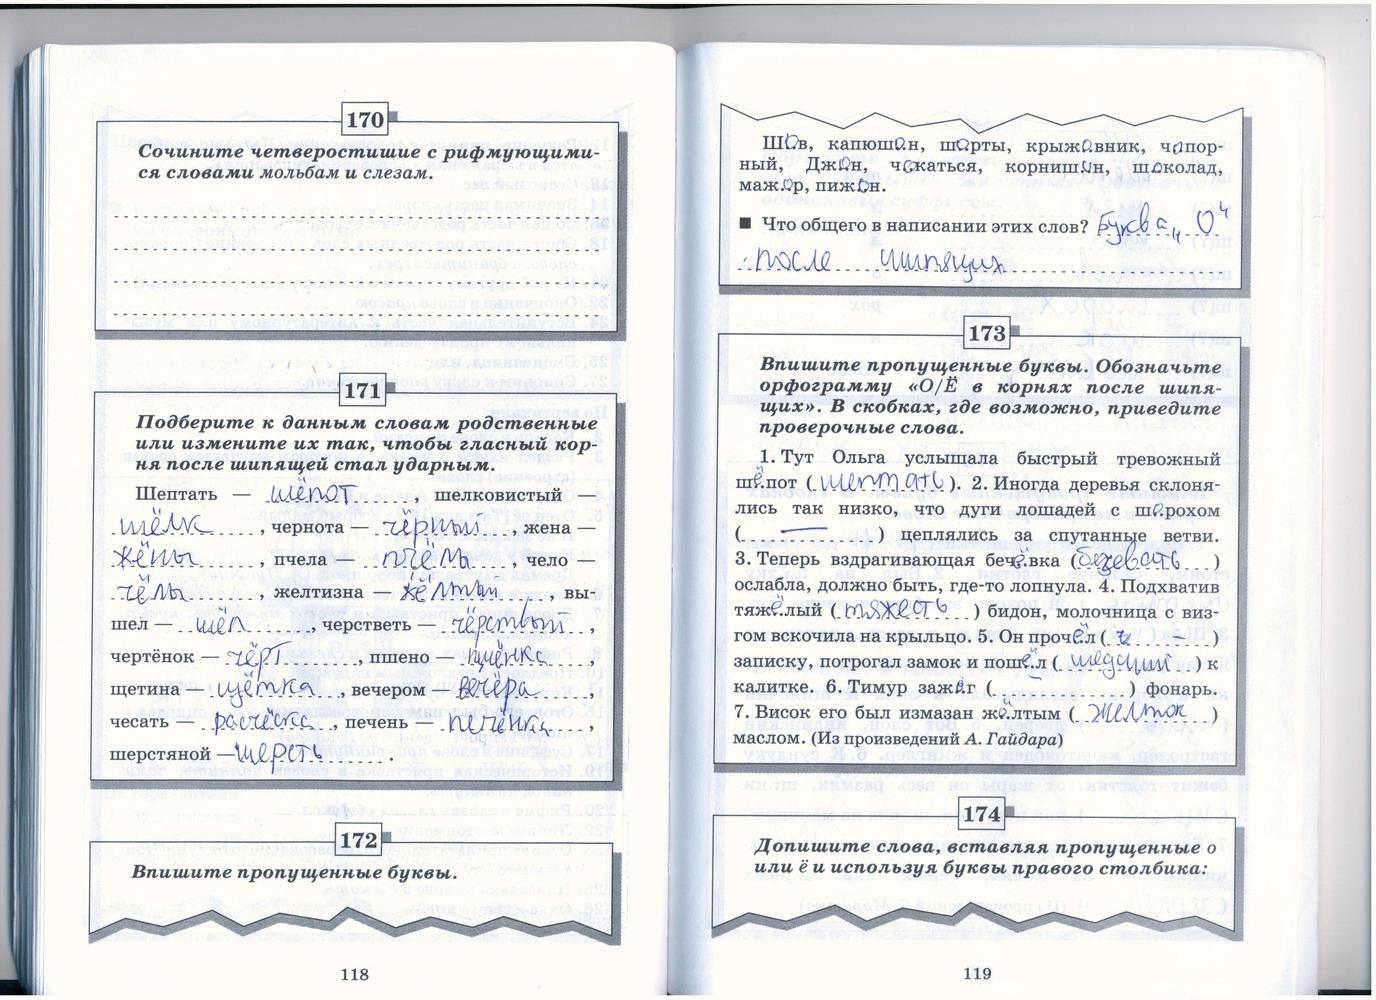 170
Сочините четверостишие с рифмующими-
ся словами мольбам и слезам.
171
Подберите к данным словам родственные
или измените их так, чтобы гласный кор-
ня после шипящей стал ударным.
Шептать — шёпот, шелковистый —
шёлк, чернота — чёрный, жена —
жёны, пчела — пчёлы, чело —
чёлы, желтизна — жёлтый, вы-
шел — шёл, черстветь — чёрствый,
чертёнок — чёрт, пшено — пшёнка,
щетина — щётка, вечером — вечёра,
чесать — расчёска, печень — печёнка,
шерстяной — шерсть.
172
Впишите пропущенные буквы.
118
Шов, капюшон, шорты, крыжовник, чопор-
ный, Джон, чокаться, корнишон, шоколад,
мажор, пижон.
■ Что общего в написании этих слов? Буква „О“
после шипящих
173
Впишите пропущенные буквы. Обозначьте
орфограмму «О/Ё в корнях после шипя-
щих». В скобках, где возможно, приведите
проверочные слова.
1. Тут Ольга услышала быстрый тревожный
шёпот (шептать). 2. Иногда деревья склоня-
лись так низко, что дуги лошадей с шорохом
( — ) цеплялись за спутанные ветви.
3. Теперь вздрагивающая бечёвка ( )
ослабла, должно быть, где-то лопнула. 4. Подхватив
тяжёлый (тяжесть) бидон, молочница с виз-
гом вскочила на крыльцо. 5. Он прочёл ( – )
записку, потрогал замок и пошёл ( ) к
калитке. 6. Тимур зажёг ( ) фонарь.
7. Висок его был измазан жёлтым (желток)
маслом. (Из произведений А. Гайдара)
174
Допишите слова, вставляя пропущенные о
или ё и используя буквы правого столбика:
119